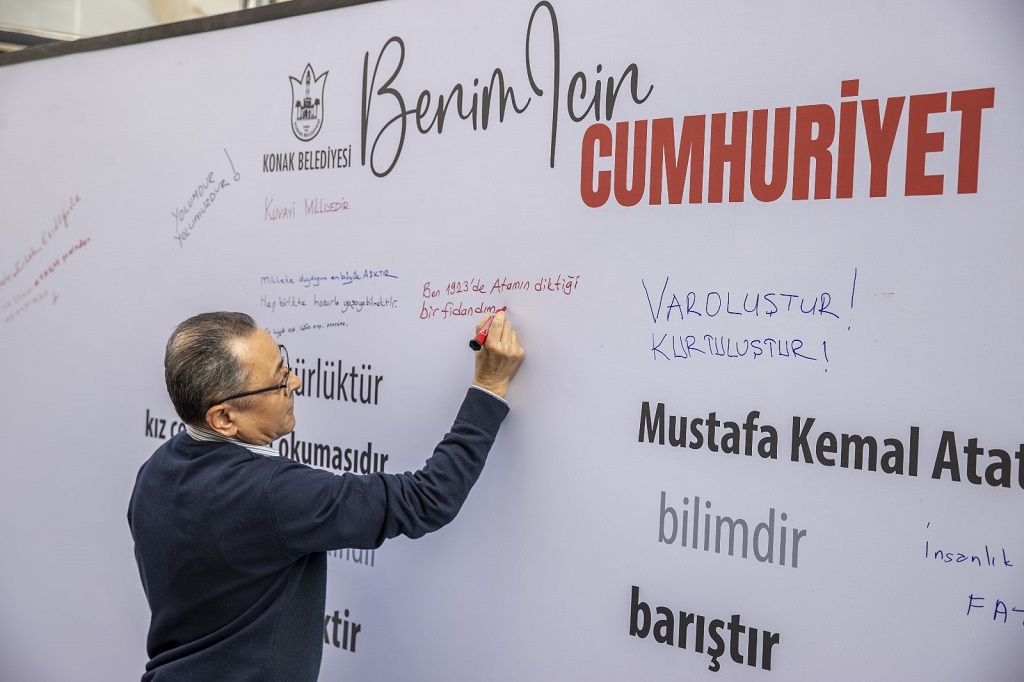 Benim İçin
CUMHURİYET
KONAK BELEDİYESİ
YOLUMDUR
YOLUMUZDUR!
KUVAYİ MİLLİYEDİR
Millete duyduğum en büyük AŞKTIR
Hep birlikte huzurla yaşayabilmektir.
Ben 1923'de Atamın diktiği
bir fidandım
VAROLUŞTUR!
KURTULUŞTUR!
kız okumasıdır
Mustafa Kemal Atat
bilimdir
İnsanlık
FAT
barıştır